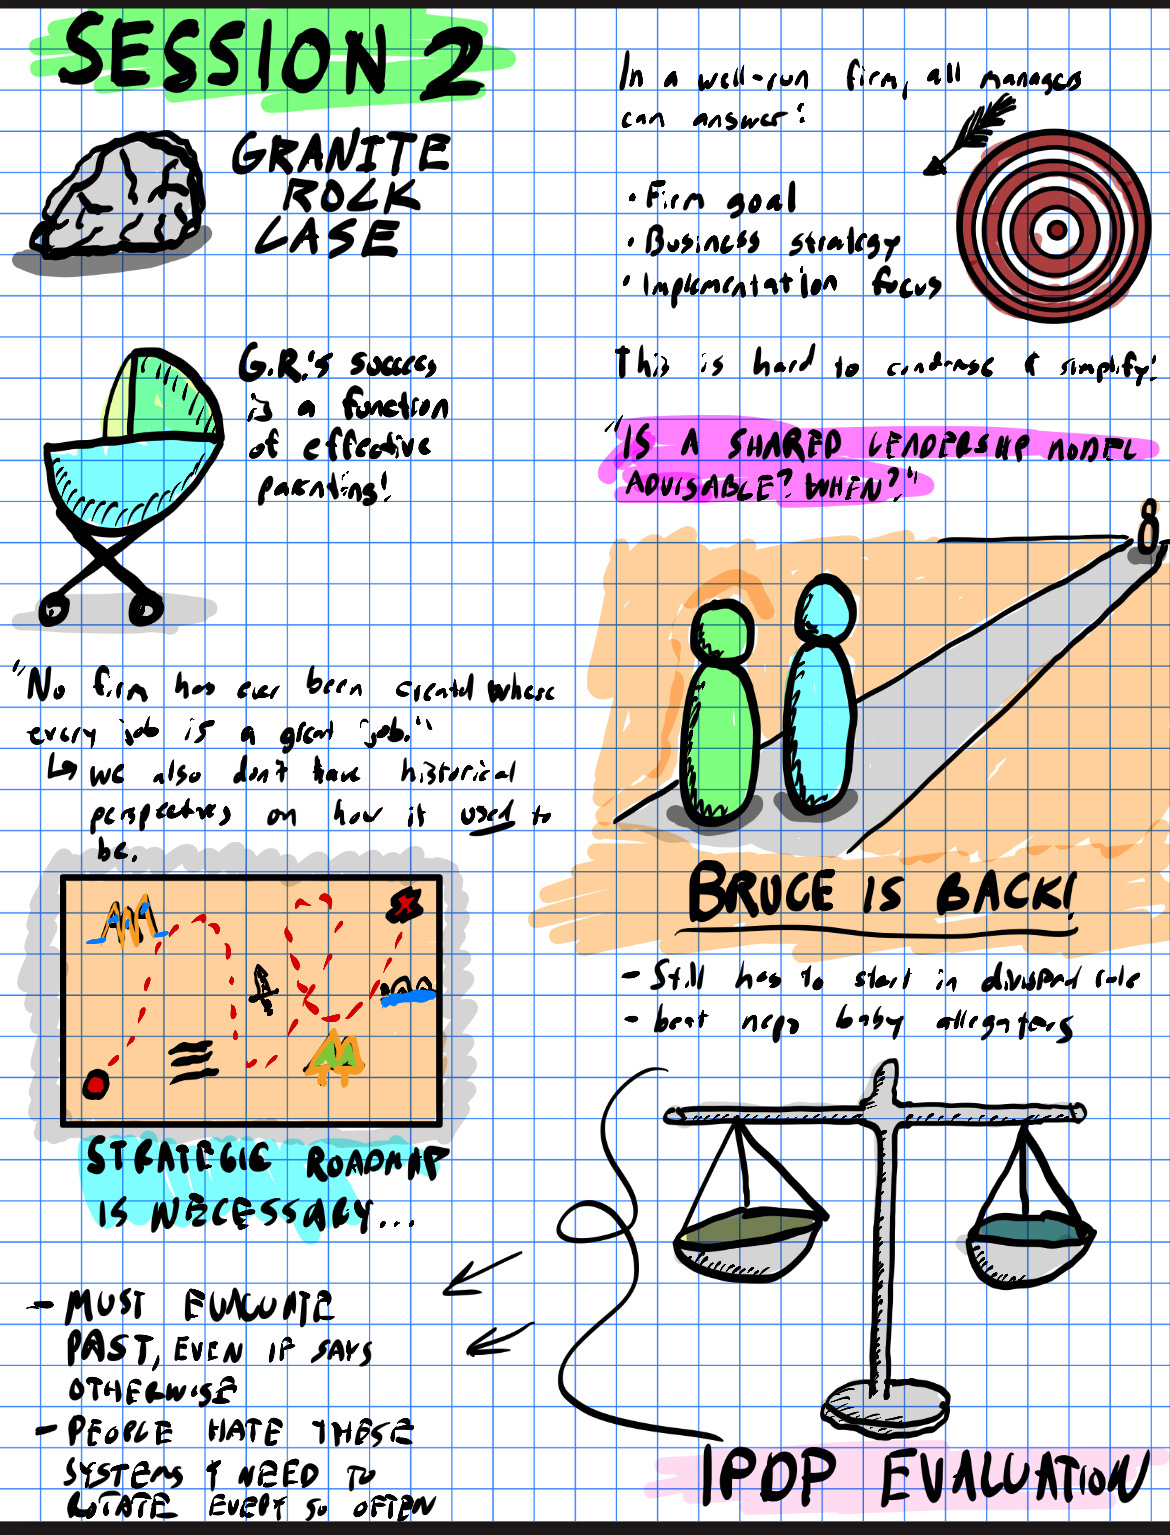 SESSION 2
GRANITE
ROCK
CASE
G.R.'s success
is a function
of effective
parenting!
"No firm has ever been created where
every job is a great job."
↳ we also don't have historical
perspectives on how it used to
be.
STRATEGIC ROADMAP
IS NECESSARY...
- MUST EVALUATE
PAST, EVEN IF SAYS
OTHERWISE
- PEOPLE HATE THESE
SYSTEMS & NEED TO
ROTATE EVERY SO OFTEN
In a well-run firm, all managers
can answer:
• Firm goal
• Business strategy
• Implementation focus
This is hard to condense & simplify!
"IS A SHARED LEADERSHIP MODEL
ADVISABLE? WHEN?"
BRUCE IS BACK!
- Still has to start in divisional role
- beat nepo baby allegators
IPDP EVALUATION